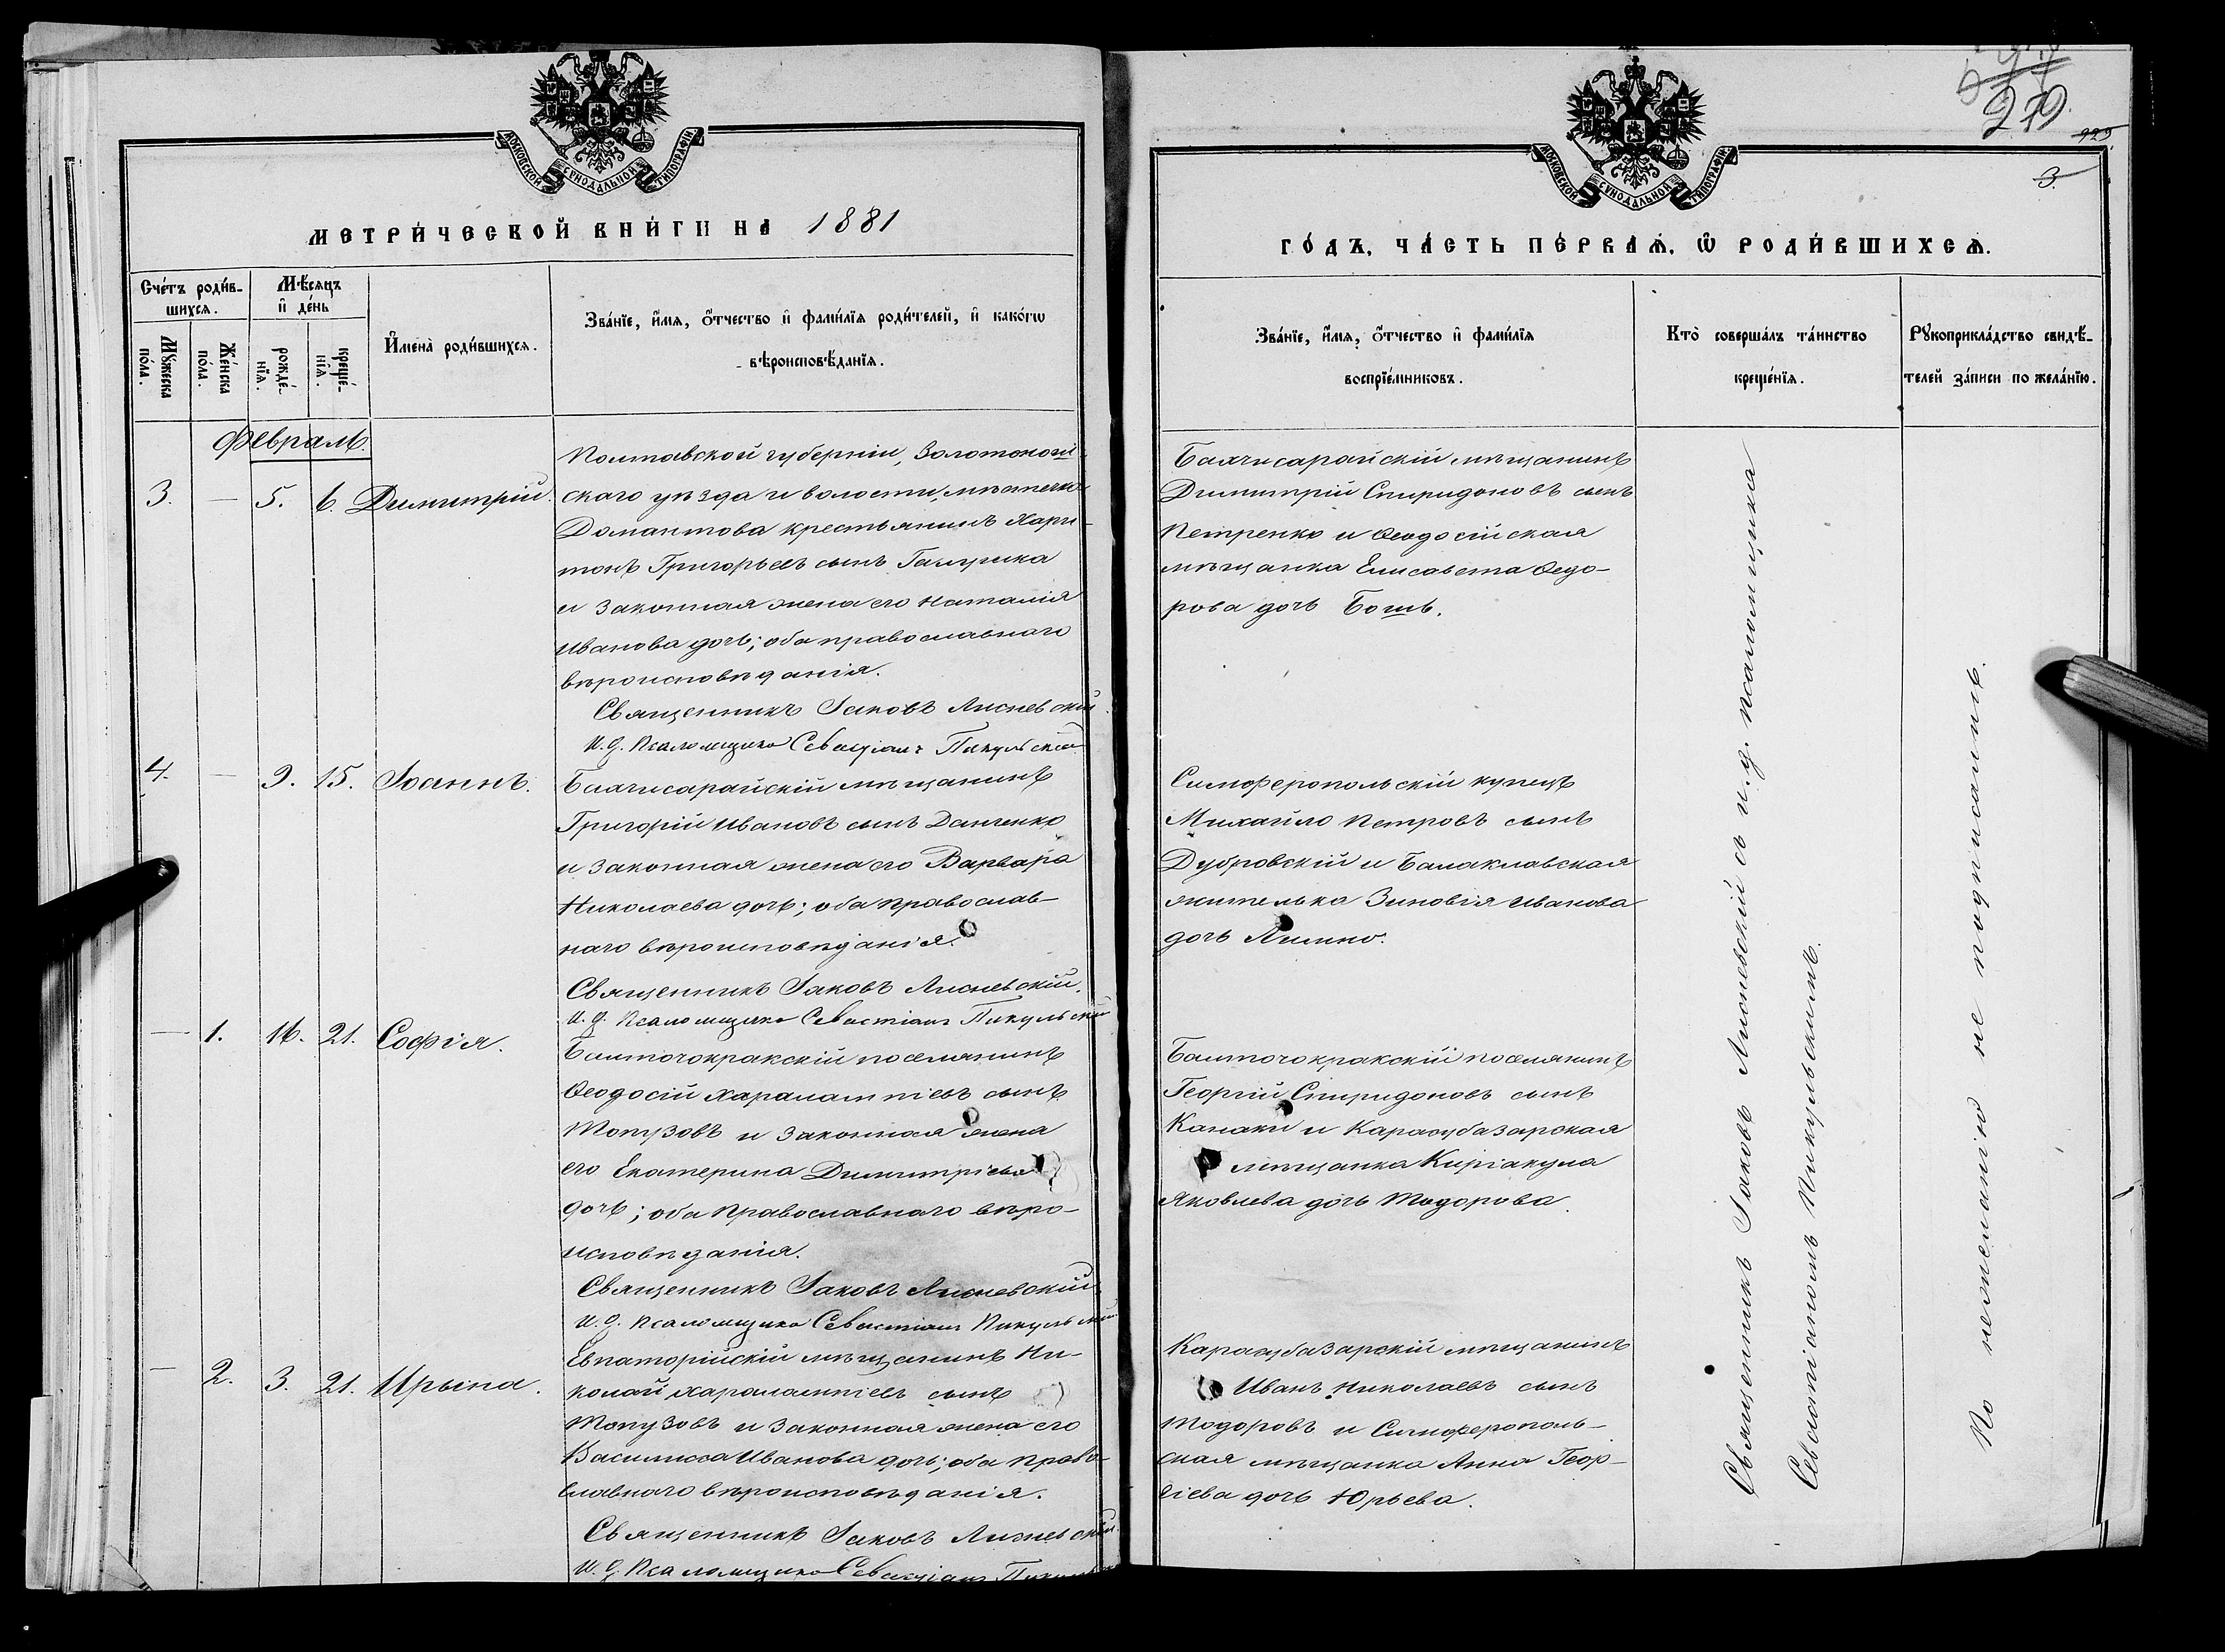 МОСКОВСКОЙ СѴНОДАЛЬНОЙ ТИПОГРАФІИ
МЕТРИ́ЧЕСКОЙ КНИ́ГИ НА 1881
Сче́тъ роди́в-
шихся.
Мѣ́сяцъ
и҆ де́нь
Мꙋ́жеска
по́ла.
Же́нска
по́ла.
рожде́-
нїѧ.
креще́-
нїѧ.
И҆мена̀ роди́вшихсѧ.
Зва́нїе, и҆́мѧ, ѻ҆́тчество и҆ фами́лїѧ роди́телей, и҆ како́гѡ
вѣроисповѣ́данїѧ.
Февраль.
3. — 5. 6. Димитрій.
Полтавской губерніи, Золотонош-
скаго уѣзда и волости, мѣстечка
Домантова крестьянинъ Хари-
тонъ Григорьевъ сынъ Галушка
и законная жена его Наталія
Иванова дочь; оба православнаго
вѣроисповѣданія.
Священникъ Іаковъ Лисневскій.
И. д. Псаломщика Севастіанъ Пикульскій
4. — 9. 15. Іоаннъ.
Бахчисарайскій мѣщанинъ
Григорій Ивановъ сынъ Данченко
и законная жена его Варвара
Николаева дочь; оба православ-
наго вѣроисповѣданія.
Священникъ Іаковъ Лисневскій.
И. д. Псаломщика Севастіанъ Пикульскій
— 1. 16. 21. Софія.
Балточокракскій поселянинъ
Ѳеодосій Харалампіевъ сынъ
Топузовъ и законная жена
его Екатерина Димитріева
дочь; оба православнаго вѣро-
исповѣданія.
Священникъ Іаковъ Лисневскій.
И. д. Псаломщика Севастіанъ Пикульскій
— 2. 3. 21. Ирина.
Евпаторійскій мѣщанинъ Ни-
колай Харалампіевъ сынъ
Топузовъ и законная жена его
Василисса Иванова дочь; оба право-
славнаго вѣроисповѣданія.
Священникъ Іаковъ Лисневскій.
И. д. Псаломщика Севастіанъ Пикульскій
279.
925.
3.
МОСКОВСКОЙ СѴНОДАЛЬНОЙ ТИПОГРАФІИ
ГО́ДЪ, ЧА́СТЬ ПЕ́РВАѦ, Ѡ҆ РОДИ́ВШИХСѦ.
Зва́нїе, и҆́мѧ, ѻ҆́тчество и҆ фами́лїѧ
воспрїе́мниковъ.
Кто̀ соверша́лъ та́инство
креще́нїѧ.
Рꙋкоприкла́дство свидѣ́-
телей за́писи по жела́нїю.
Бахчисарайскій мѣщанинъ
Димитрій Спиридоновъ сынъ
Петренко и Ѳеодосійская
мѣщанка Елисавета Ѳедо-
рова дочь Бошь.
Симферопольскій купецъ
Михайло Петровъ сынъ
Дубровскій и Балаклавская
жителька Зиновія Иванова
дочь
Балточокракскій поселянинъ
Георгій Спиридоновъ сынъ
Канаки и Карасубазарская
мѣщанка Киріакула
Яковлева дочь Тодорова.
Карасубазарскій мѣщанинъ
Иванъ Николаевъ сынъ
Тодоровъ и Симферополь-
ская мѣщанка Анна Геор-
гіева дочь Юрьева.
Священникъ Іаковъ Лисневскій съ и. д. псаломщика
Севастіаномъ Пикульскимъ.
По нежеланію не подписались.